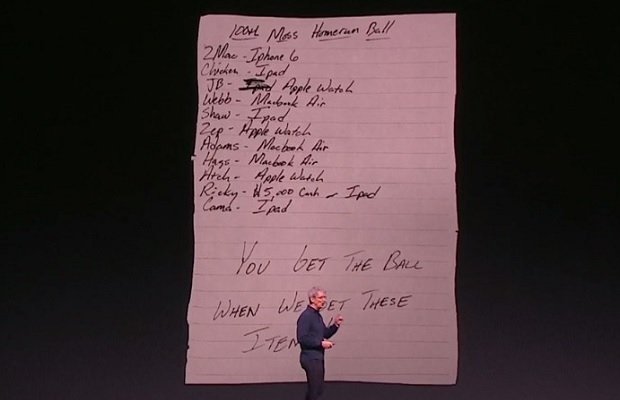 100th Moss Homerun Ball
2Mac - Iphone 6
Chicken - Ipad
JB - Apple Watch
Webb - Macbook Air
Shaw - Ipad
Zep - Apple Watch
Adams - Macbook Air
Hags - Macbook Air
Htch - Apple Watch
Ricky - $5,000 Cash or Ipad
Cama - Ipad
YOU GET THE BALL
WHEN WE GET THESE
ITEM